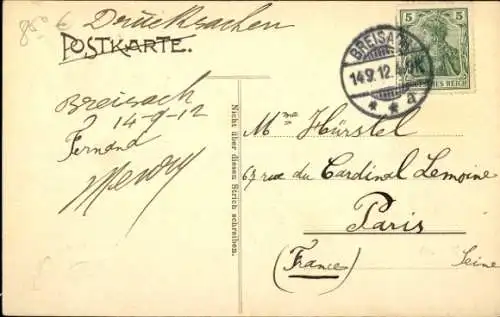 850 €
Drucksachen
POSTKARTE.
BREISACH
14.9.12.
a
5 5
DEUTSCHES REICH
Breisach
14-9-12
Fernand
Nicht über diesen Strich schreiben.
M^me Hürstel
67 rue du Cardinal Lemoine
Paris
(France) Seine